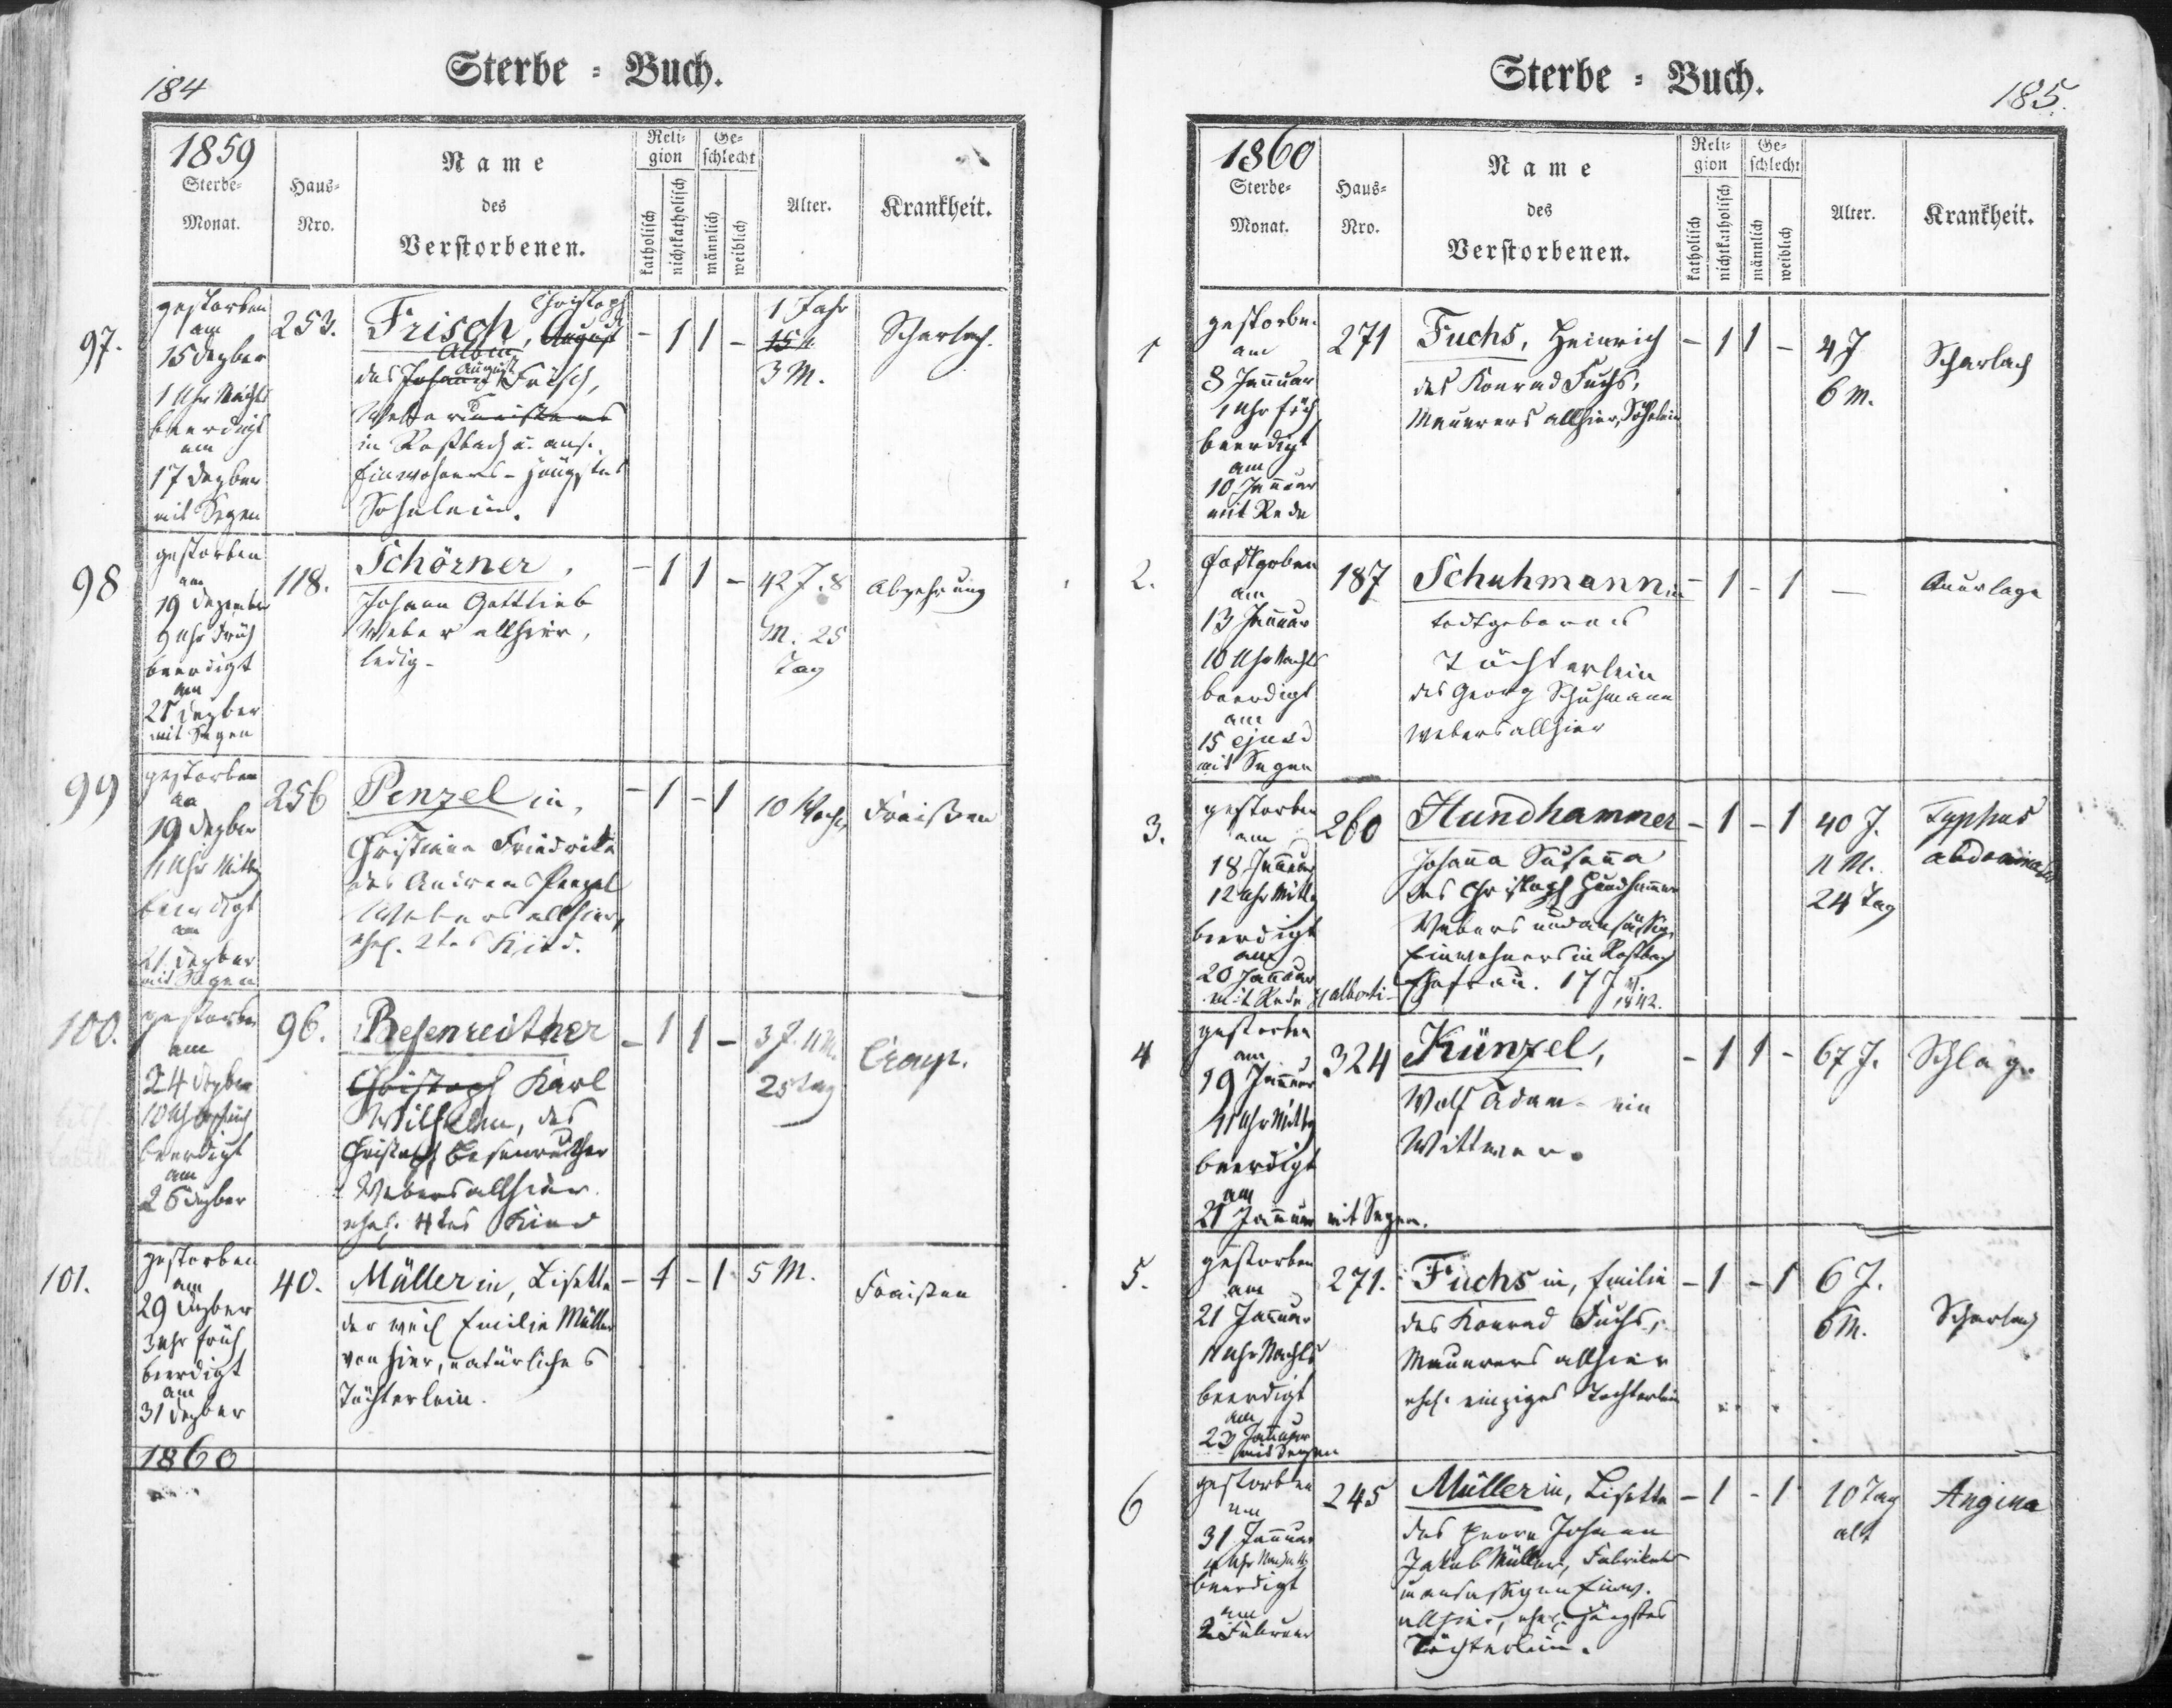 184
Sterbe = Buch.
1859
Sterbe-
Monat.
Haus-
Nro.
Name
des
Verstorbenen.
Reli-
gion
katholisch
nichtkatholisch
Ge-
schlecht
männlich
weiblich
Alter.
Krankheit.
97.
gestorben
am
15 Dezber
1 Uhr Nachts
beerdigt
am
17 Dezber
mit Segen
253.
Christoph
Frisch, August
Albin
August
des Johann Frisch,
Weber
in Roßbach u. ans.
Einwohners - jüngstes
Söhnlein.
- 1 1
1 Jahr
3 M.
Scharlach.
98
gestorben
am
19 Dezember
9 Uhr Früh
beerdigt
am
21 Dezber
mit Segen
118.
Schörner,
Johann Gottlieb
Weber allhier,
ledig -
- 1 1 -
42 J. 8
M. 25
Tag
Abzehrung
99
gestorben
am
19 Dezber
11 Uhr Mittg
beerdigt
am
21. Dezber
mit Segen
256
Penzel in,
Christiana Friedrika
des Andreas Penzel
Webers allhier,
ehel. 2tes Kind.
- 1 - 1
10 Woch.
Fraißen
100.
gestorben
am
24 Dezber
10 Uhr
beerdigt
am
26 Dezber
96.
Besenreither
Christoph Karl
Wilhelm, des
Christoph Besenreither
Webers allhier
ehel. 4tes Kind
- 1 1 -
3 J. 11 M.
25 Tag
Croup.
101.
gestorben
am
29 Dezber
3 Uhr früh
beerdigt
am
31 Dezber
40.
Müller in, Lisette
der Emilie Müller
von hier, natürliches
Töchterlein.
- 1 - 1
5 M.
Fraißen
1860
185.
Sterbe = Buch.
1860
Sterbe-
Monat.
Haus-
Nro.
Name
des
Verstorbenen.
Reli-
gion
katholisch
nichtkatholisch
Ge-
schlecht
männlich
weiblich
Alter.
Krankheit.
1
gestorben
am
8 Jannuar
1 Uhr früh
beerdigt
am
10 Jannuar
mit Rede
271
Fuchs, Heinrich
des Konrad Fuchs,
Maurers allhier, Söhnlein
- 1 1 -
4 J
6 M.
Scharlach
2.
am
13 Jannuar
10 Uhr Nachts
beerdigt
am
15 ejusd
mit Segen
187
Schuhmann in
todtgebornes
Töchterlein
des Georg Schuhmann
Webers allhier
- 1 - 1 -
3.
gestorben
am
18 Jannuar
12 Uhr Mittg
beerdigt
am
20 Jannuar
mit Rede
260
Hundhammer
Johanna Susanna
des Christoph Hundhammer
Webers und ansäßig.
Einwohners in Roßbach
Ehefrau. 17
1842.
- 1 - 1
40 J.
11 M.
24 Tag
Typhus
abdominalis
4
gestorben
am
19 Jannuar
11 Uhr Mittg
beerdigt
am
21 Jannuar mit Segen.
324
Künzel,
Wolf Adam - ein
Wittwer.
- 1 1 -
67 J.
Schlag.
5.
gestorben
am
21 Jannuar
11 Uhr Nachts
beerdigt
am
23 Jannuar
mit Segen
271.
Fuchs in, Emilie
des Konrad Fuchs,
Maurers allhier
ehel. einziges Töchterlein
- 1 - 1
6 J.
6 M.
Scharlach
6
gestorben
am
31 Jannuar
4 Uhr
beerdigt
am
2 Februar
245
Müller in, Lisette
des Herrn Johann
Jakob Müller, Fabrikant
u ansässigen Einw.
allhier, ehel. jüngstes
Töchterlein.
- 1 - 1
10 Tag
alt
Angina